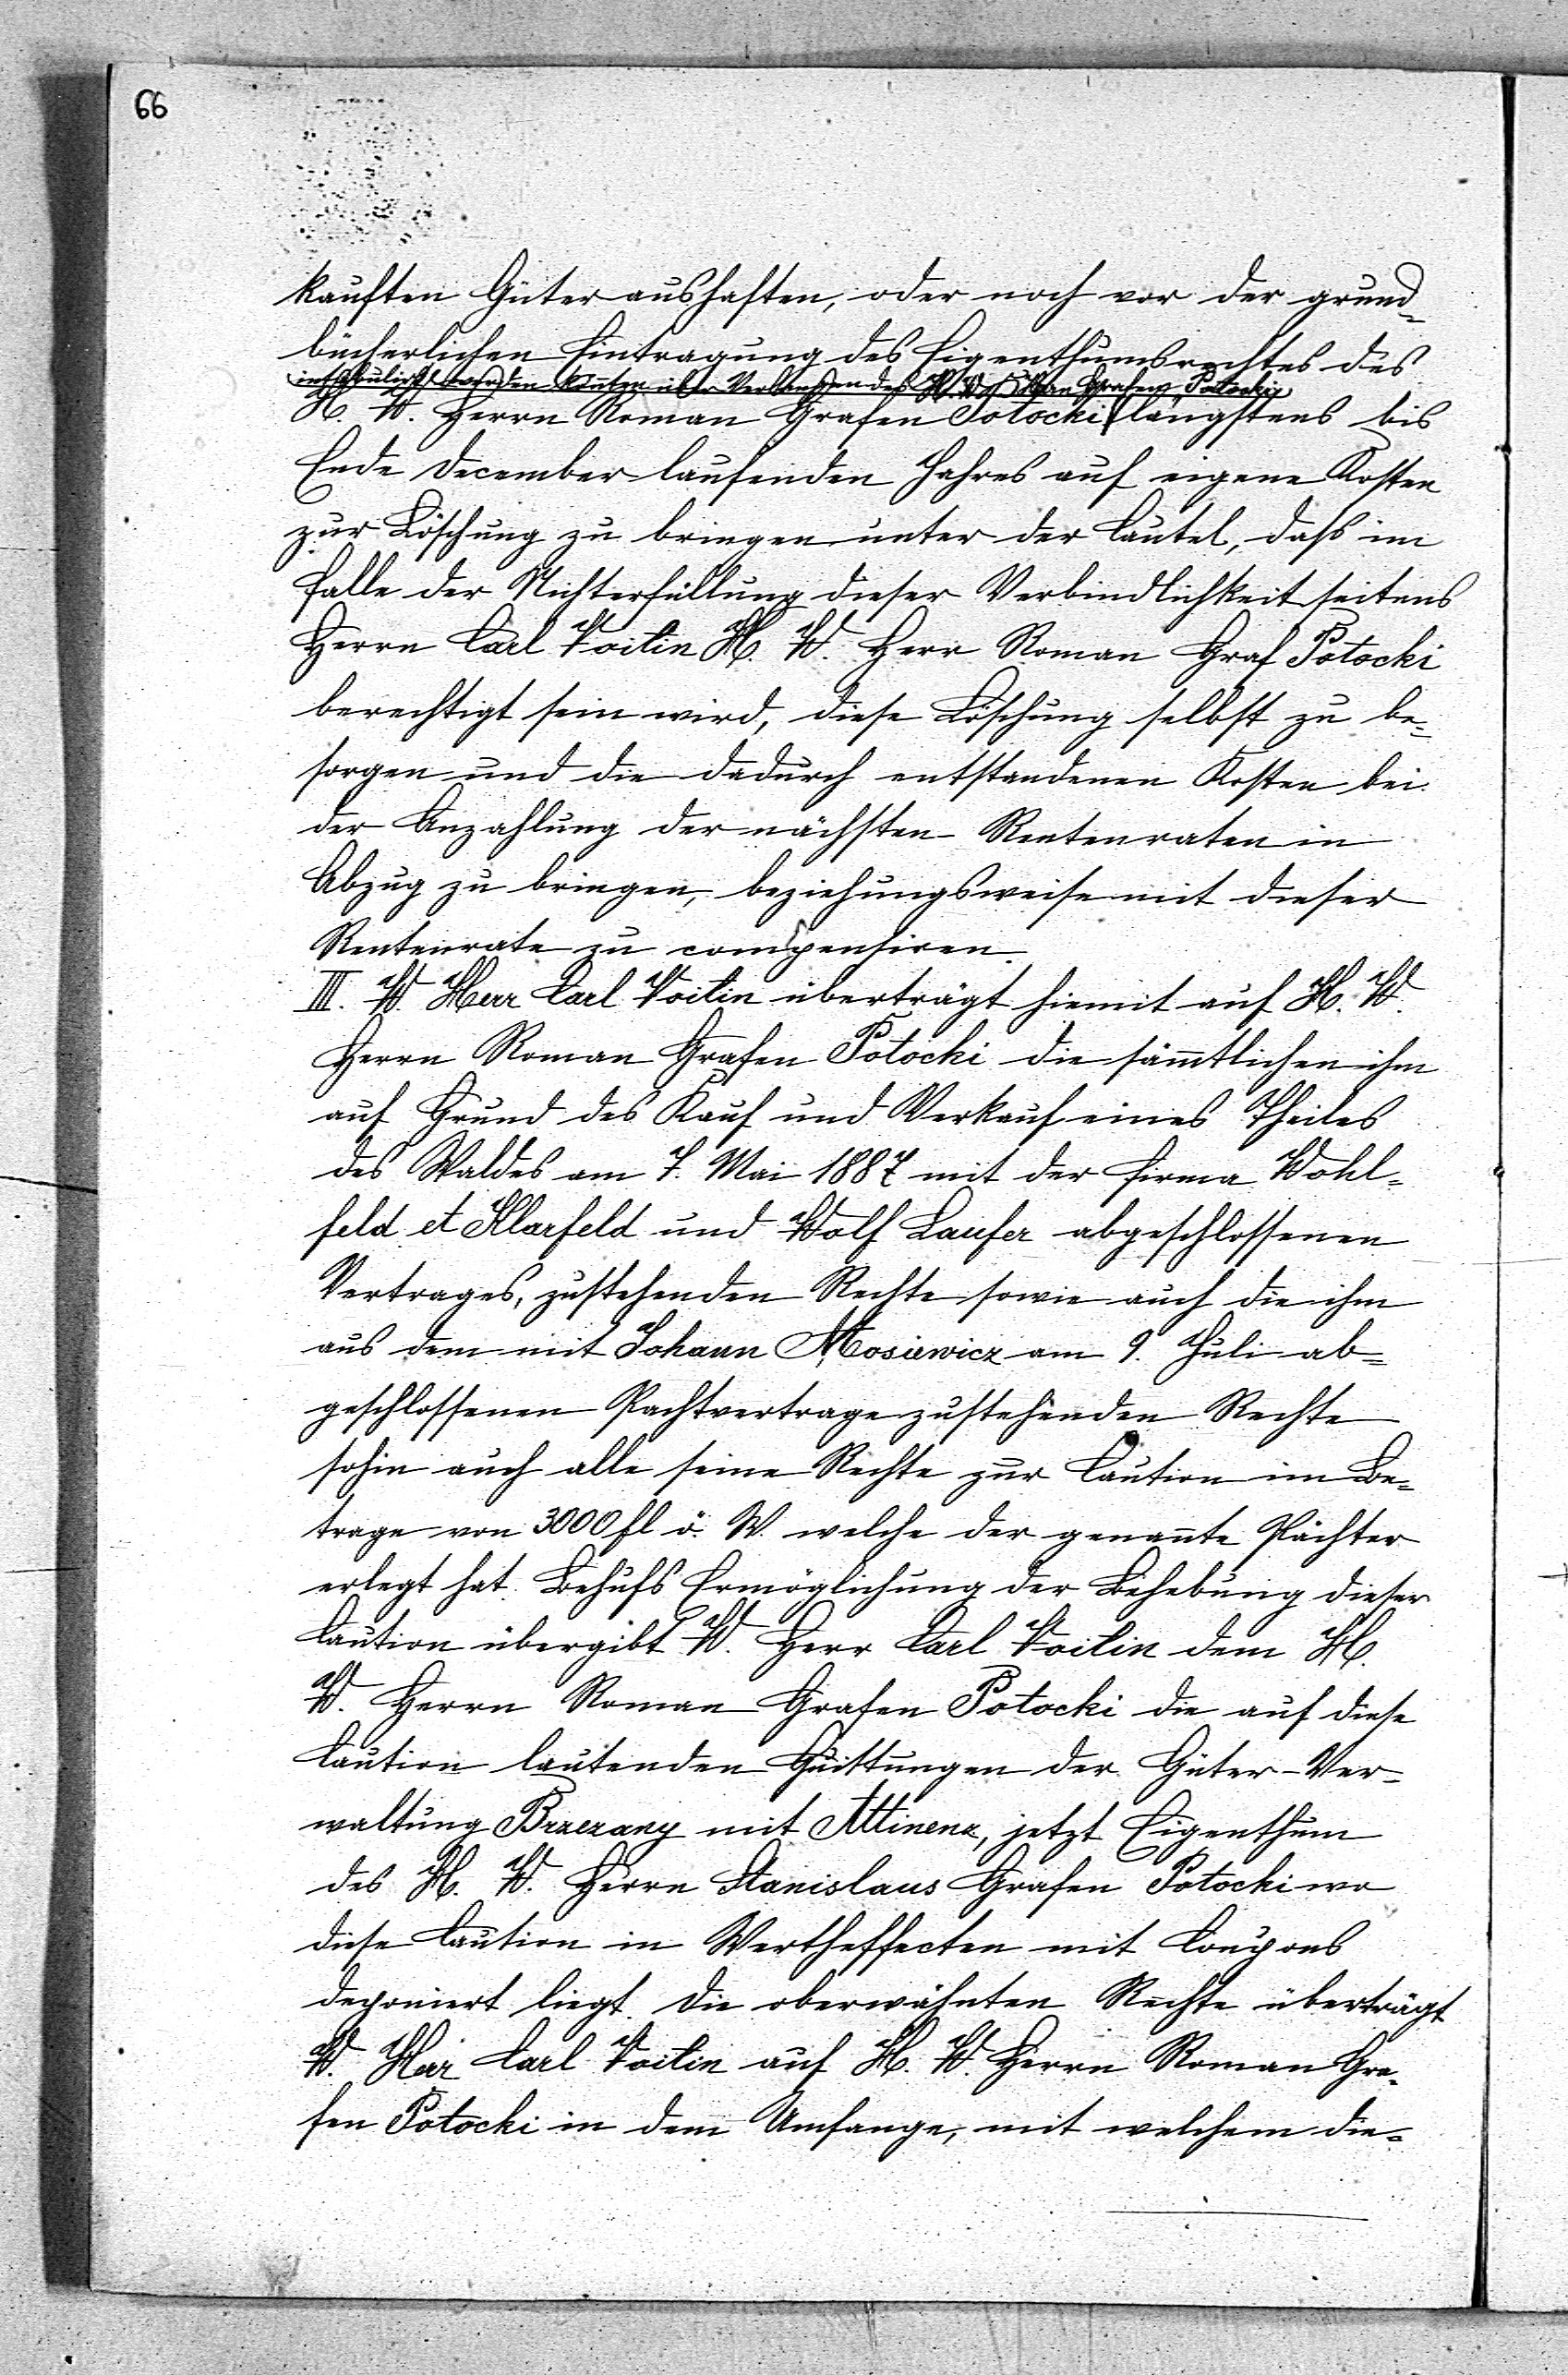 66
kauften Güter aushaften, oder noch vor der grund=
bücherlichen Eintragung des Eigenthumsrechtes des
intabulirt werden könten über Verlangen des H. W. H. Roman Grafen Potocki
H. W. Herrn Roman Grafen Potocki längstens bis
Ende December laufenden Jahres auf eigene Kosten
zur Löschung zu bringen unter der Cautel, daß im
Falle der Nichterfüllung dieser Verbindlichkeit seitens
Herrn Carl Voitin H. W. Herr Roman Graf Potocki
berechtigt sein wird, diese Löschung selbst zu be=
sorgen und die dadurch entstandenen Kosten bei
der Anzahlung der nächsten Rentenraten in
Abzug zu bringen, beziehungsweise mit dieser
Rentenrate zu compensiren.
III. W. Herr Carl Voitin überträgt hiemit auf H. W.
Herrn Roman Grafen Potocki die sämmtlichen ihm
auf Grund des Kauf und Verkauf eines Theiles
des Waldes am 7. Mai 1887 mit der Firma Wohl=
feld et Klarfeld und Wolf Laufer abgeschlossenen
Vertrages, zustehenden Rechte sowie auch die ihm
aus dem mit Johann Mosiewicz am 9. Juli ab=
geschlossenen Pachtvertrage zustehenden Rechte
sohin auch alle seine Rechte zur Caution im Be=
trage von 3000 fl ö. W. welche der genannte Pächter
erlegt hat. Behufs Ermöglichung der Behebung dieser
Caution übergibt W. Herr Carl Voitin dem H.
W. Herrn Roman Grafen Potocki die auf diese
Caution lautenden Quittungen der Güter-Ver=
waltung Brzezany mit Attinenz, jetzt Eigenthum
des H. W. Herrn Stanislaus Grafen Potocki wo
diese Caution in Wertheffecten mit Coupons
deponiert liegt. Die oberwähnten Rechte überträgt
W. Herr Carl Voitin auf H. W. Herrn Roman Gra=
fen Potocki in dem Umfange, mit welchem die=